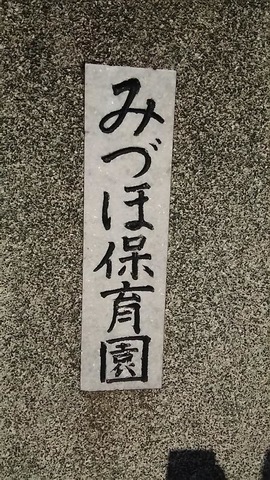 みづほ保育園